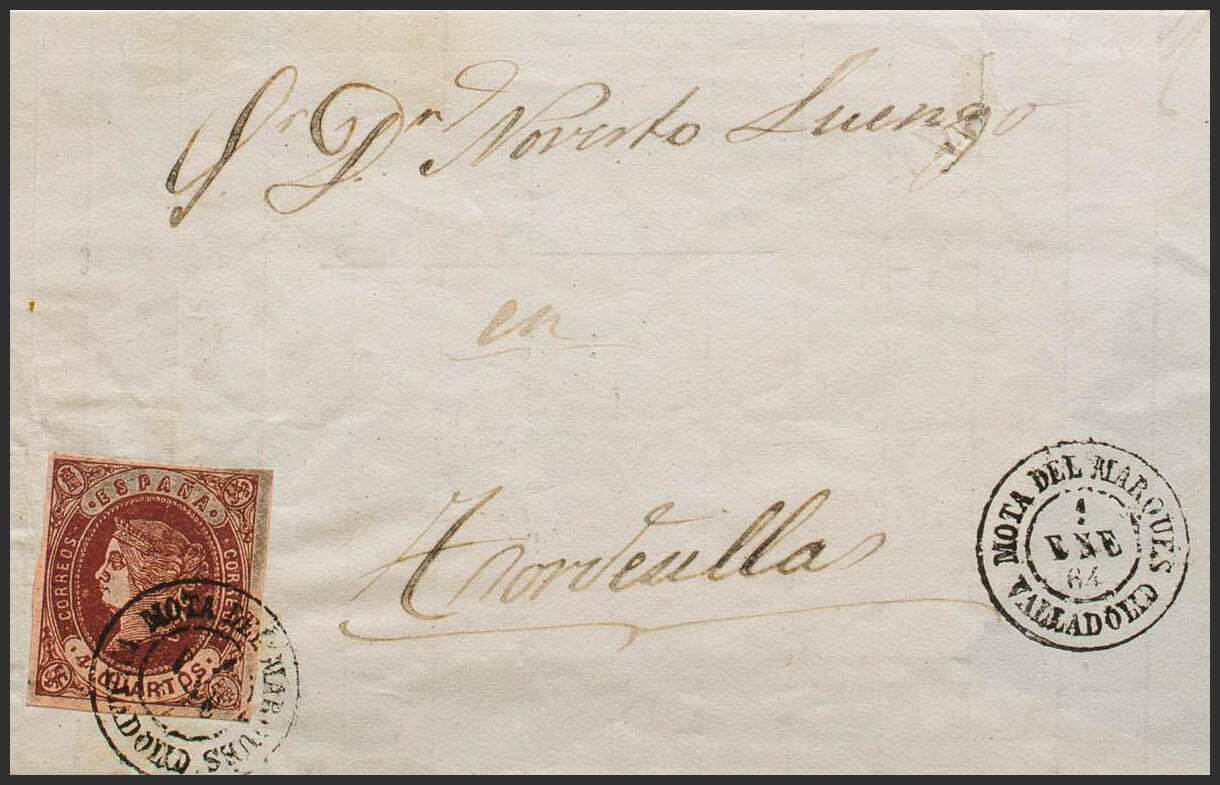 Sr. Dn Noverto Luengo
en
Tordesilla
ESPAÑA
CORREOS.
CORREOS
4 CUARTOS.
MOTA DEL MARQUES
VALLADOLID
MOTA DEL MARQUES
1
ENE
64
VALLADOLID